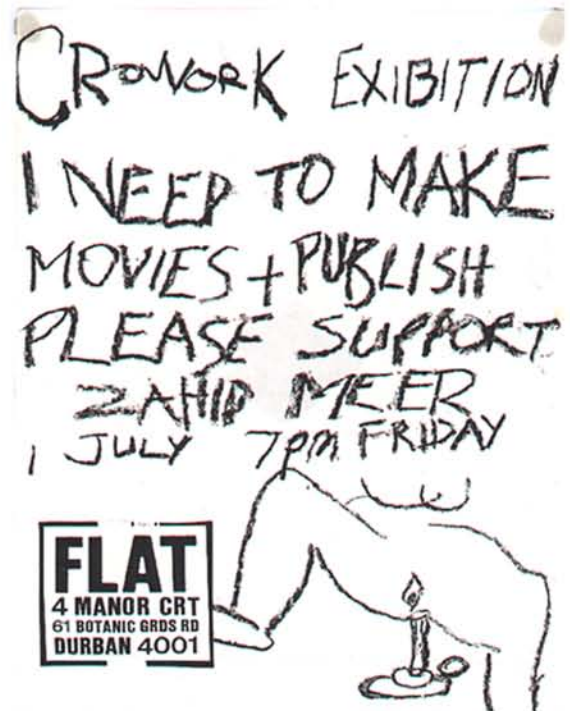 CROWORK EXIBITION
I NEED TO MAKE
MOVIES + PUBLISH
PLEASE SUPPORT
ZAHID MEER
1 JULY 7pm FRIDAY
FLAT
4 MANOR CRT
61 BOTANIC GRDS RD
DURBAN 4001